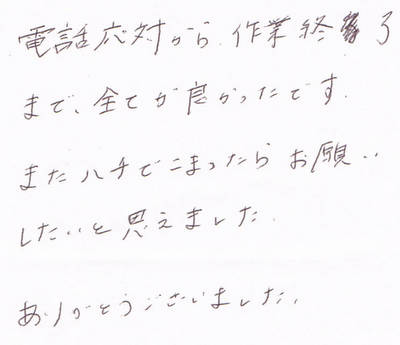 電話応対から、作業終了
まで、全てが良かったです。
またハチでこまったらお願い
したいと思えました。
ありがとうございました。